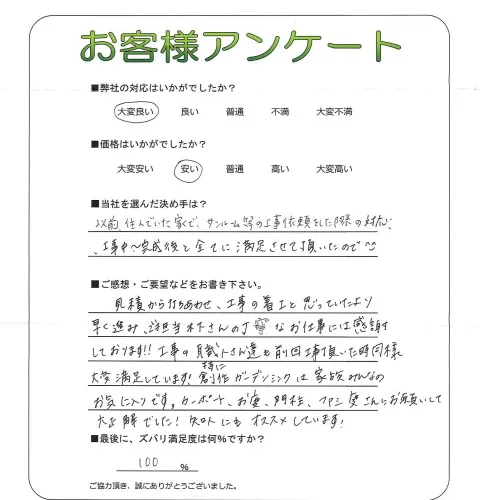 お客様アンケート
■弊社の対応はいかがでしたか？
大変良い 良い 普通 不満 大変不満
■価格はいかがでしたか？
大変安い 安い 普通 高い 大変高い
■当社を選んだ決め手は？
以前、住んでいた家で、サンルーム等の工事依頼をした際の対応、
、工事中〜完成後と全てに満足させて頂いたので
■ご感想・ご要望などをお書き下さい。
見積から打ちあわせ、工事の着工と思っていたより
早く進み、ご担当木下さんの丁寧なお仕事には感謝
しております!! 工事の職人さん達も前回工事頂いた時同様
大変満足しています! 特に創作ガーデンシンクは家族みんなの
お気に入りです。カーポート、お庭、門柱、さんにお願いして
大正解でした! 知人にもオススメしています!
■最後に、ズバリ満足度は何％ですか？
100 %
ご協力頂き、誠にありがとうございました。